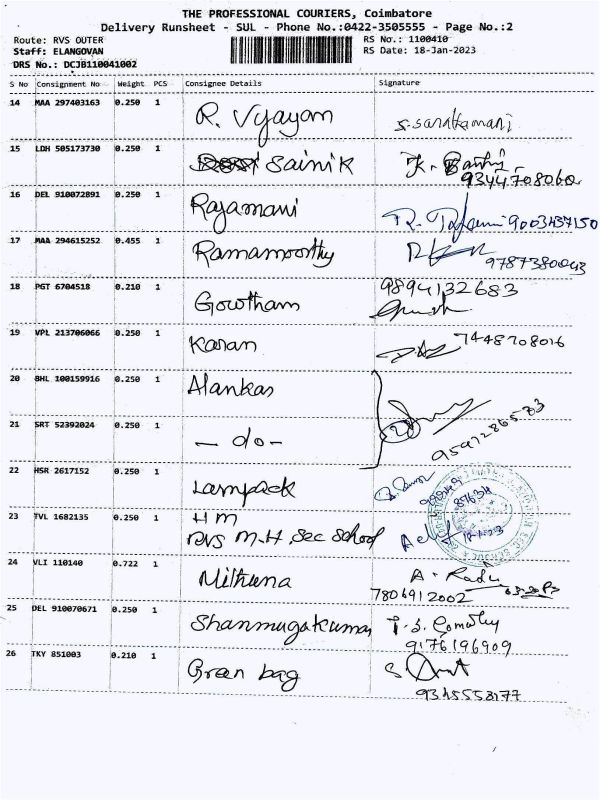 THE PROFESSIONAL COURIERS, Coimbatore
Delivery Runsheet - SUL - Phone No.:0422-3505555 - Page No.:2
Route: RVS OUTER
RS No.: 1100410
Staff: ELANGOVAN
RS Date: 18-Jan-2023
DRS No.: DCJB110041002
S No Consignment No Weight PCS Consignee Details Signature
14 MAA 297403163 0.250 1 R. Vijayam
15 LDH 505173730 0.250 1 Sainik
9344708060
16 DEL 910072891 0.250 1 Rajamani 9003437150
17 MAA 294615252 0.455 1 Ramamoorthy
9787380043
18 PGT 6704518 0.210 1 Gowtham 9894132683
19 VPL 213706066 0.250 1 Karan 7448708016
20 BHL 100159916 0.250 1 Alankar
21 SRT 52392024 0.250 1 - do -
9597286583
22 HSR 2617152 0.250 1 Lampack
23 TVL 1682135 0.250 1 HM
RVS M.H, Sec School
24 VLI 110140 0.722 1 Mithuna A. Radu
7806912002
25 DEL 910070671 0.250 1 Shanmugakumar
9176196909
26 TKY 851003 0.210 1 Green bag
9345558177